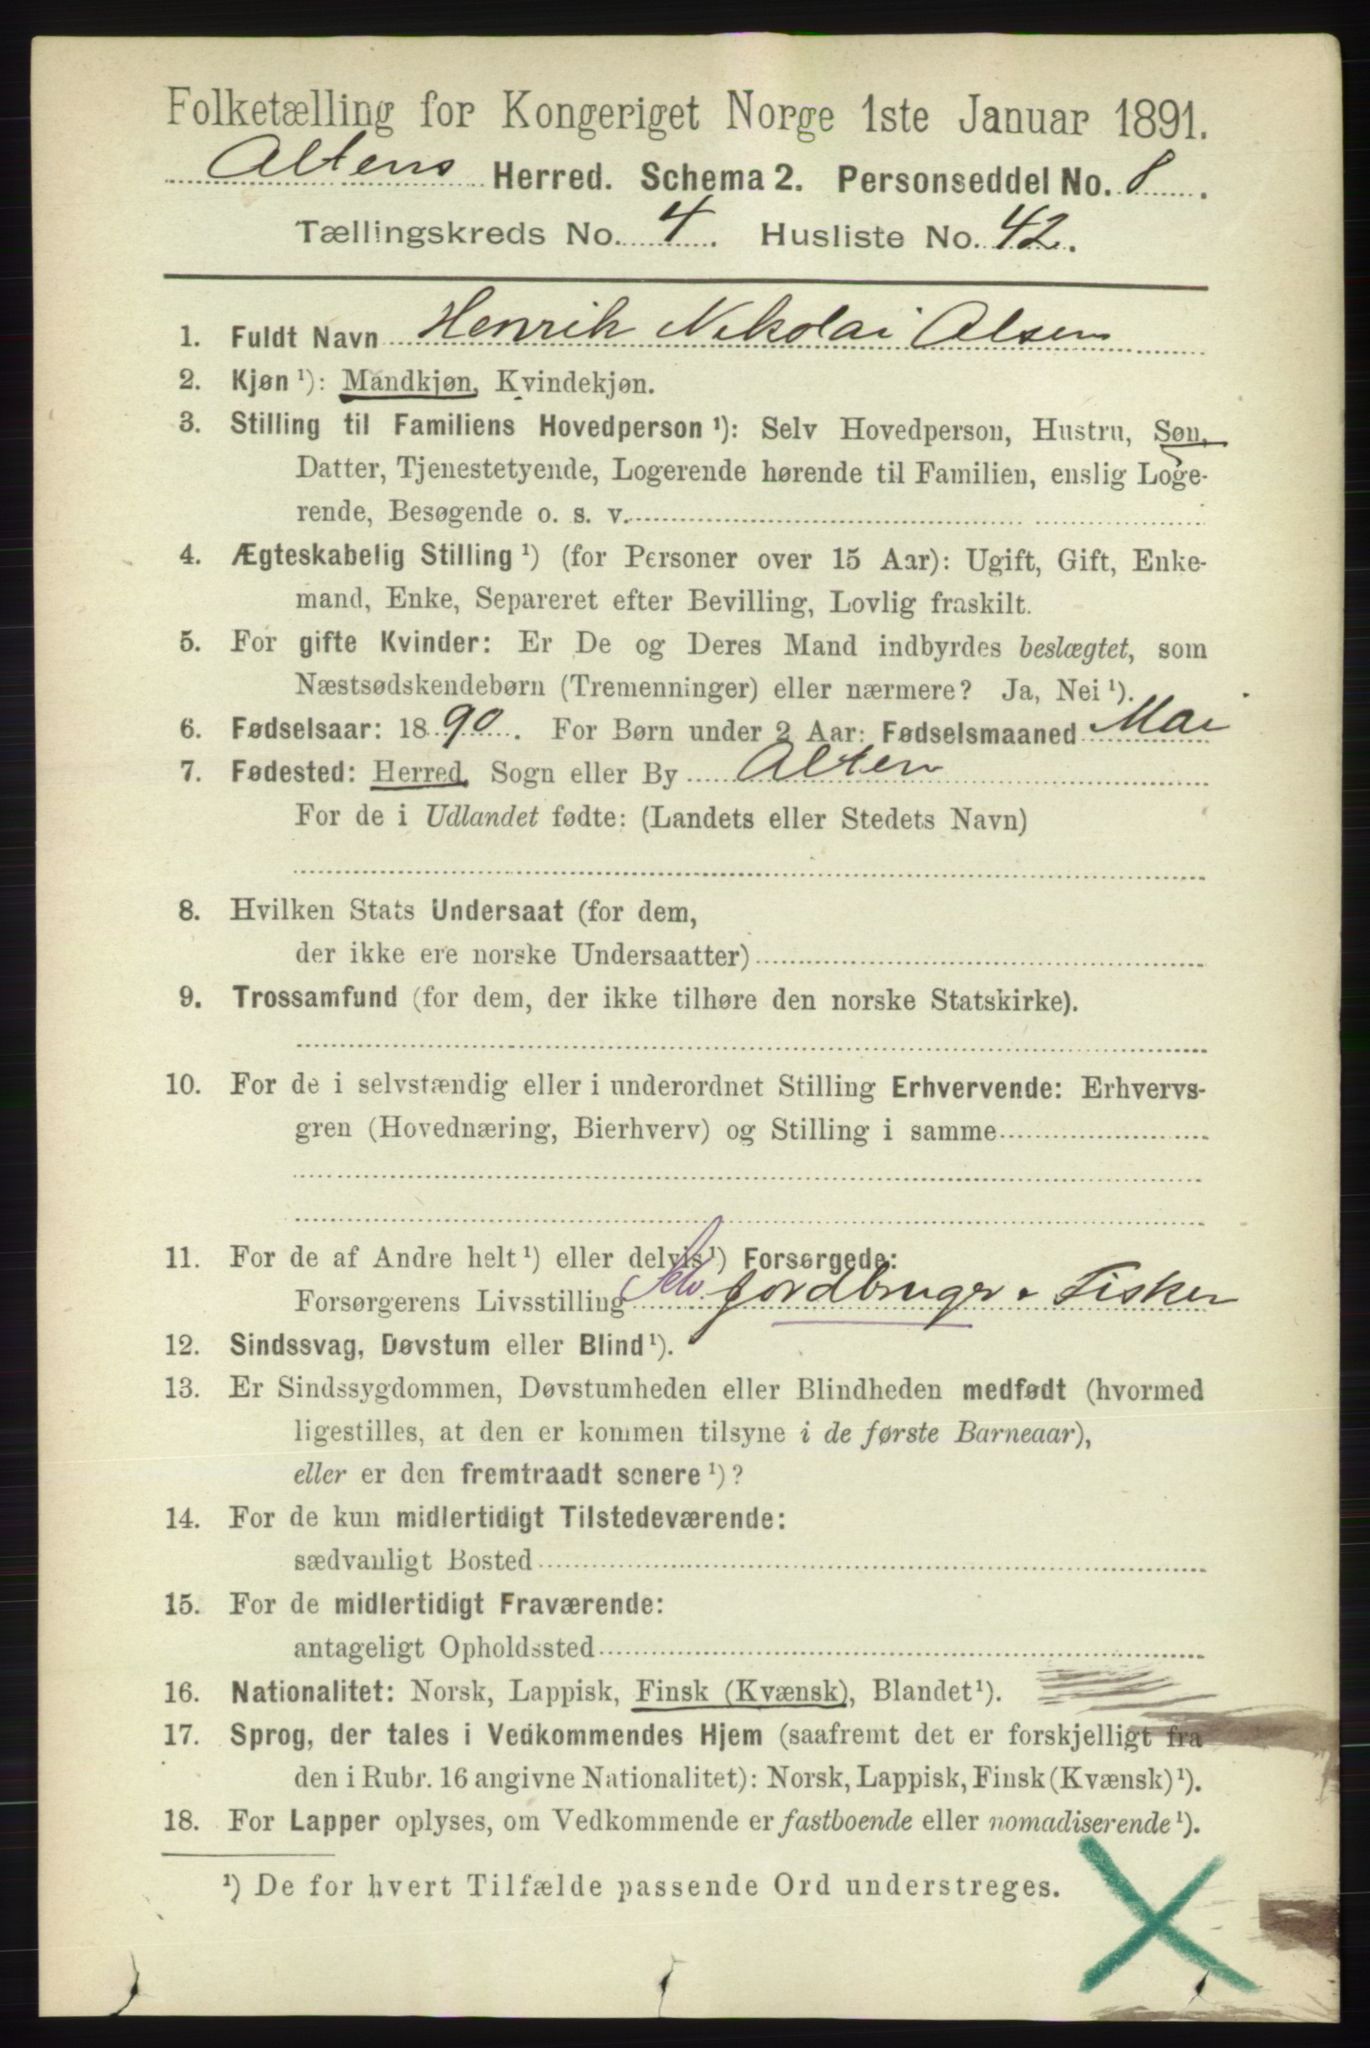 Folketælling for Kongeriget Norge 1ste Januar 1891.
Altens Herred. Schema 2. Personseddel No. 8.
Tællingskreds No. 4. Husliste No. 42.
1. Fuldt Navn Henrik Nikolai Olsen
2. Kjøn ¹): Mandkjøn, Kvindekjøn.
3. Stilling til Familiens Hovedperson ¹): Selv Hovedperson, Hustru, Søn,
Datter, Tjenestetyende, Logerende hørende til Familien, enslig Loge-
rende, Besøgende o. s. v.
4. Ægteskabelig Stilling ¹) (for Personer over 15 Aar): Ugift, Gift, Enke-
mand, Enke, Separeret efter Bevilling, Lovlig fraskilt.
5. For gifte Kvinder: Er De og Deres Mand indbyrdes beslægtet, som
Næstsødskendebørn (Tremenninger) eller nærmere? Ja, Nei ¹).
6. Fødselsaar: 1890. For Børn under 2 Aar: Fødselsmaaned Mai
7. Fødested: Herred, Sogn eller By Alten
For de i Udlandet fødte: (Landets eller Stedets Navn)
8. Hvilken Stats Undersaat (for dem,
der ikke ere norske Undersaatter)
9. Trossamfund (for dem, der ikke tilhøre den norske Statskirke).
10. For de i selvstændig eller i underordnet Stilling Erhvervende: Erhvervs-
gren (Hovednæring, Bierhverv) og Stilling i samme
11. For de af Andre helt ¹) eller delvis ¹) Forsørgede:
Forsørgerens Livsstilling Selv. Jordbruger & Fisker
12. Sindssvag, Døvstum eller Blind ¹).
13. Er Sindssygdommen, Døvstumheden eller Blindheden medfødt (hvormed
ligestilles, at den er kommen tilsyne i de første Barneaar),
eller er den fremtraadt senere ¹)?
14. For de kun midlertidigt Tilstedeværende:
sædvanligt Bosted
15. For de midlertidigt Fraværende:
antageligt Opholdssted
16. Nationalitet: Norsk, Lappisk, Finsk (Kvænsk), Blandet ¹).
17. Sprog, der tales i Vedkommendes Hjem (saafremt det er forskjelligt fra
den i Rubr. 16 angivne Nationalitet): Norsk, Lappisk, Finsk (Kvænsk) ¹).
18. For Lapper oplyses, om Vedkommende er fastboende eller nomadiserende ¹).
¹) De for hvert Tilfælde passende Ord understreges.